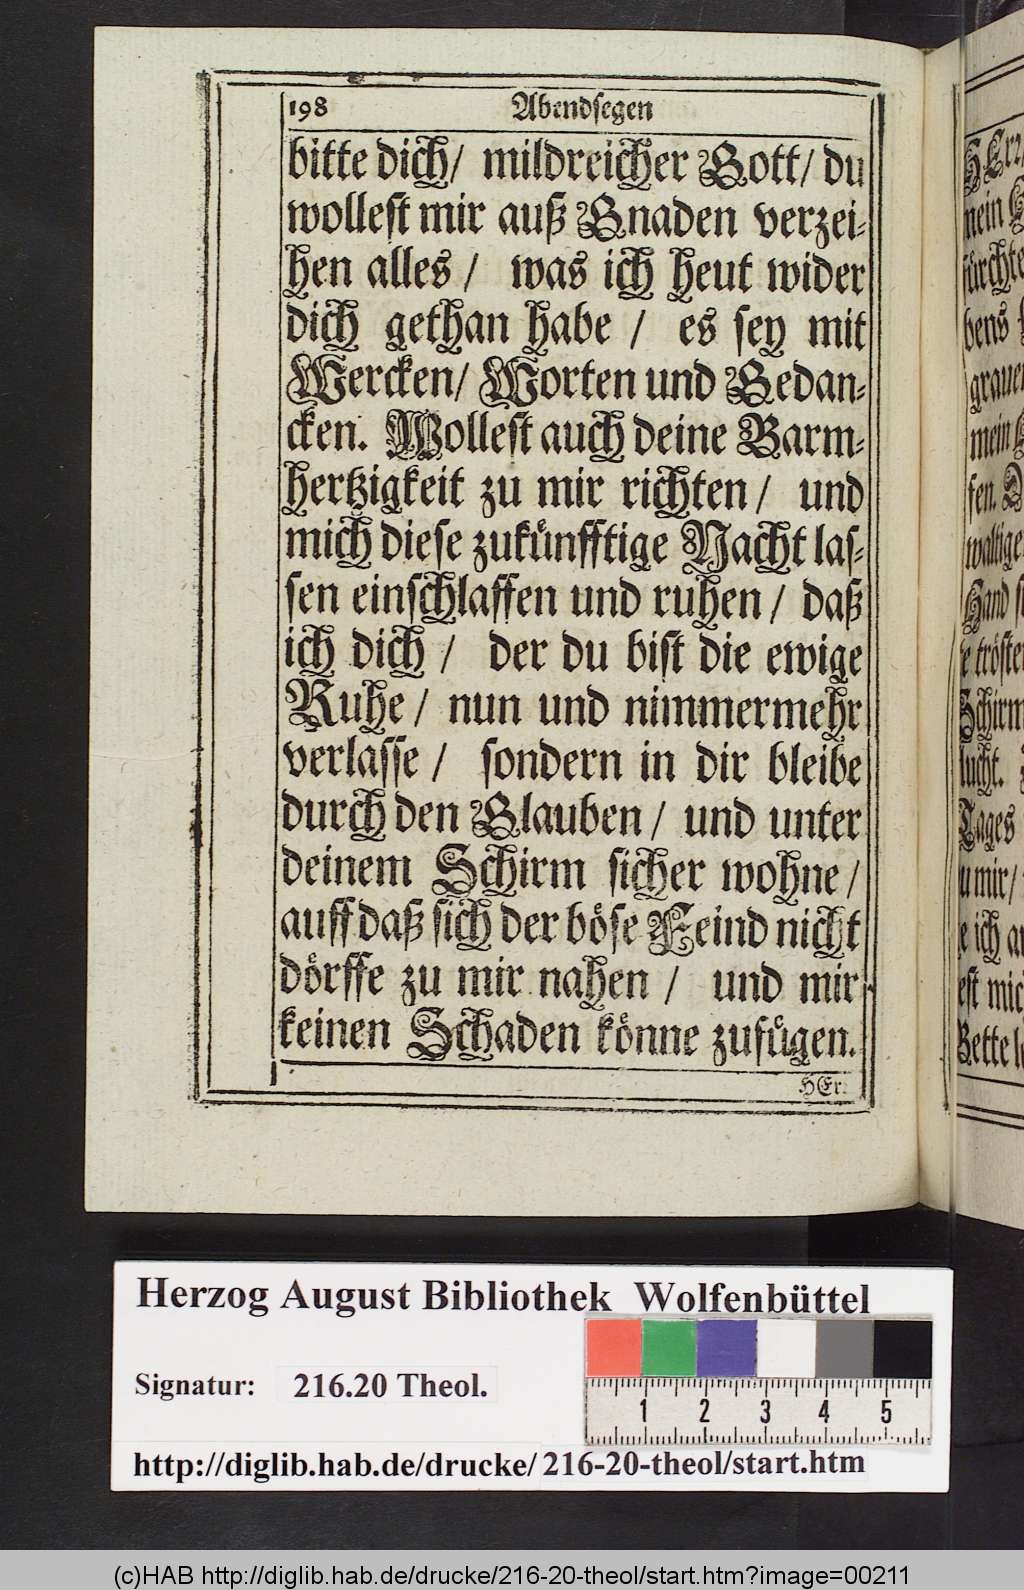 198 Abendsegen
bitte dich/ mildreicher Gott/ du
wollest mir auß Gnaden verzei-
hen alles/ was ich heut wider
dich gethan habe/ es sey mit
Wercken/ Worten und Gedan-
cken. Wollest auch deine Barm-
hertzigkeit zu mir richten/ und
mich diese zukünfftige Nacht las-
sen einschlaffen und ruhen/ daß
ich dich/ der du bist die ewige
Ruhe/ nun und nimmermehr
verlasse/ sondern in dir bleibe
durch den Glauben/ und unter
deinem Schirm sicher wohne/
auff daß sich der böse Feind nicht
dörffe zu mir nahen/ und mir
keinen Schaden könne zufügen.
HEr-
mein
bens
mein
fen.
Hand
Schirm
Tages
mir/
ich
Bette
Herzog August Bibliothek Wolfenbüttel
Signatur: 216.20 Theol.
1 2 3 4 5
http://diglib.hab.de/drucke/216-20-theol/start.htm
(c)HAB http://diglib.hab.de/drucke/216-20-theol/start.htm?image=00211